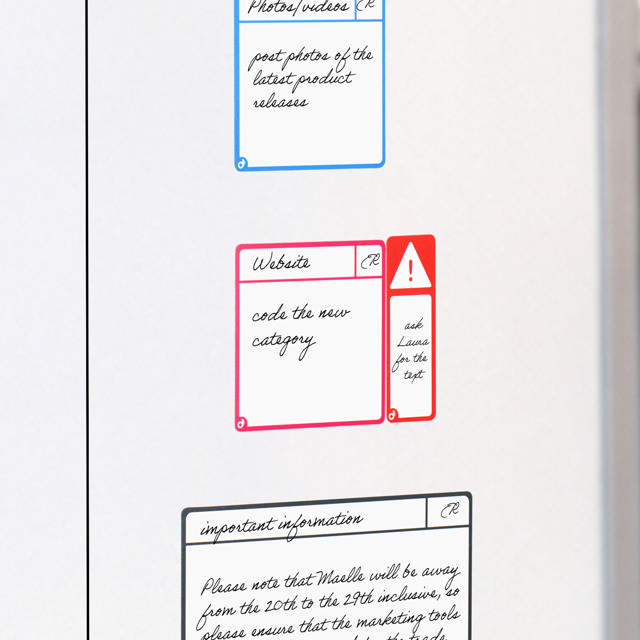 Photos/videos ER
post photos of the
latest product
releases
Website ER
code the new
category
!
ask
Laura
for the
text
important information ER
Please note that Maelle will be away
from the 20th to the 29th inclusive, so
please ensure that the marketing tools
the trade